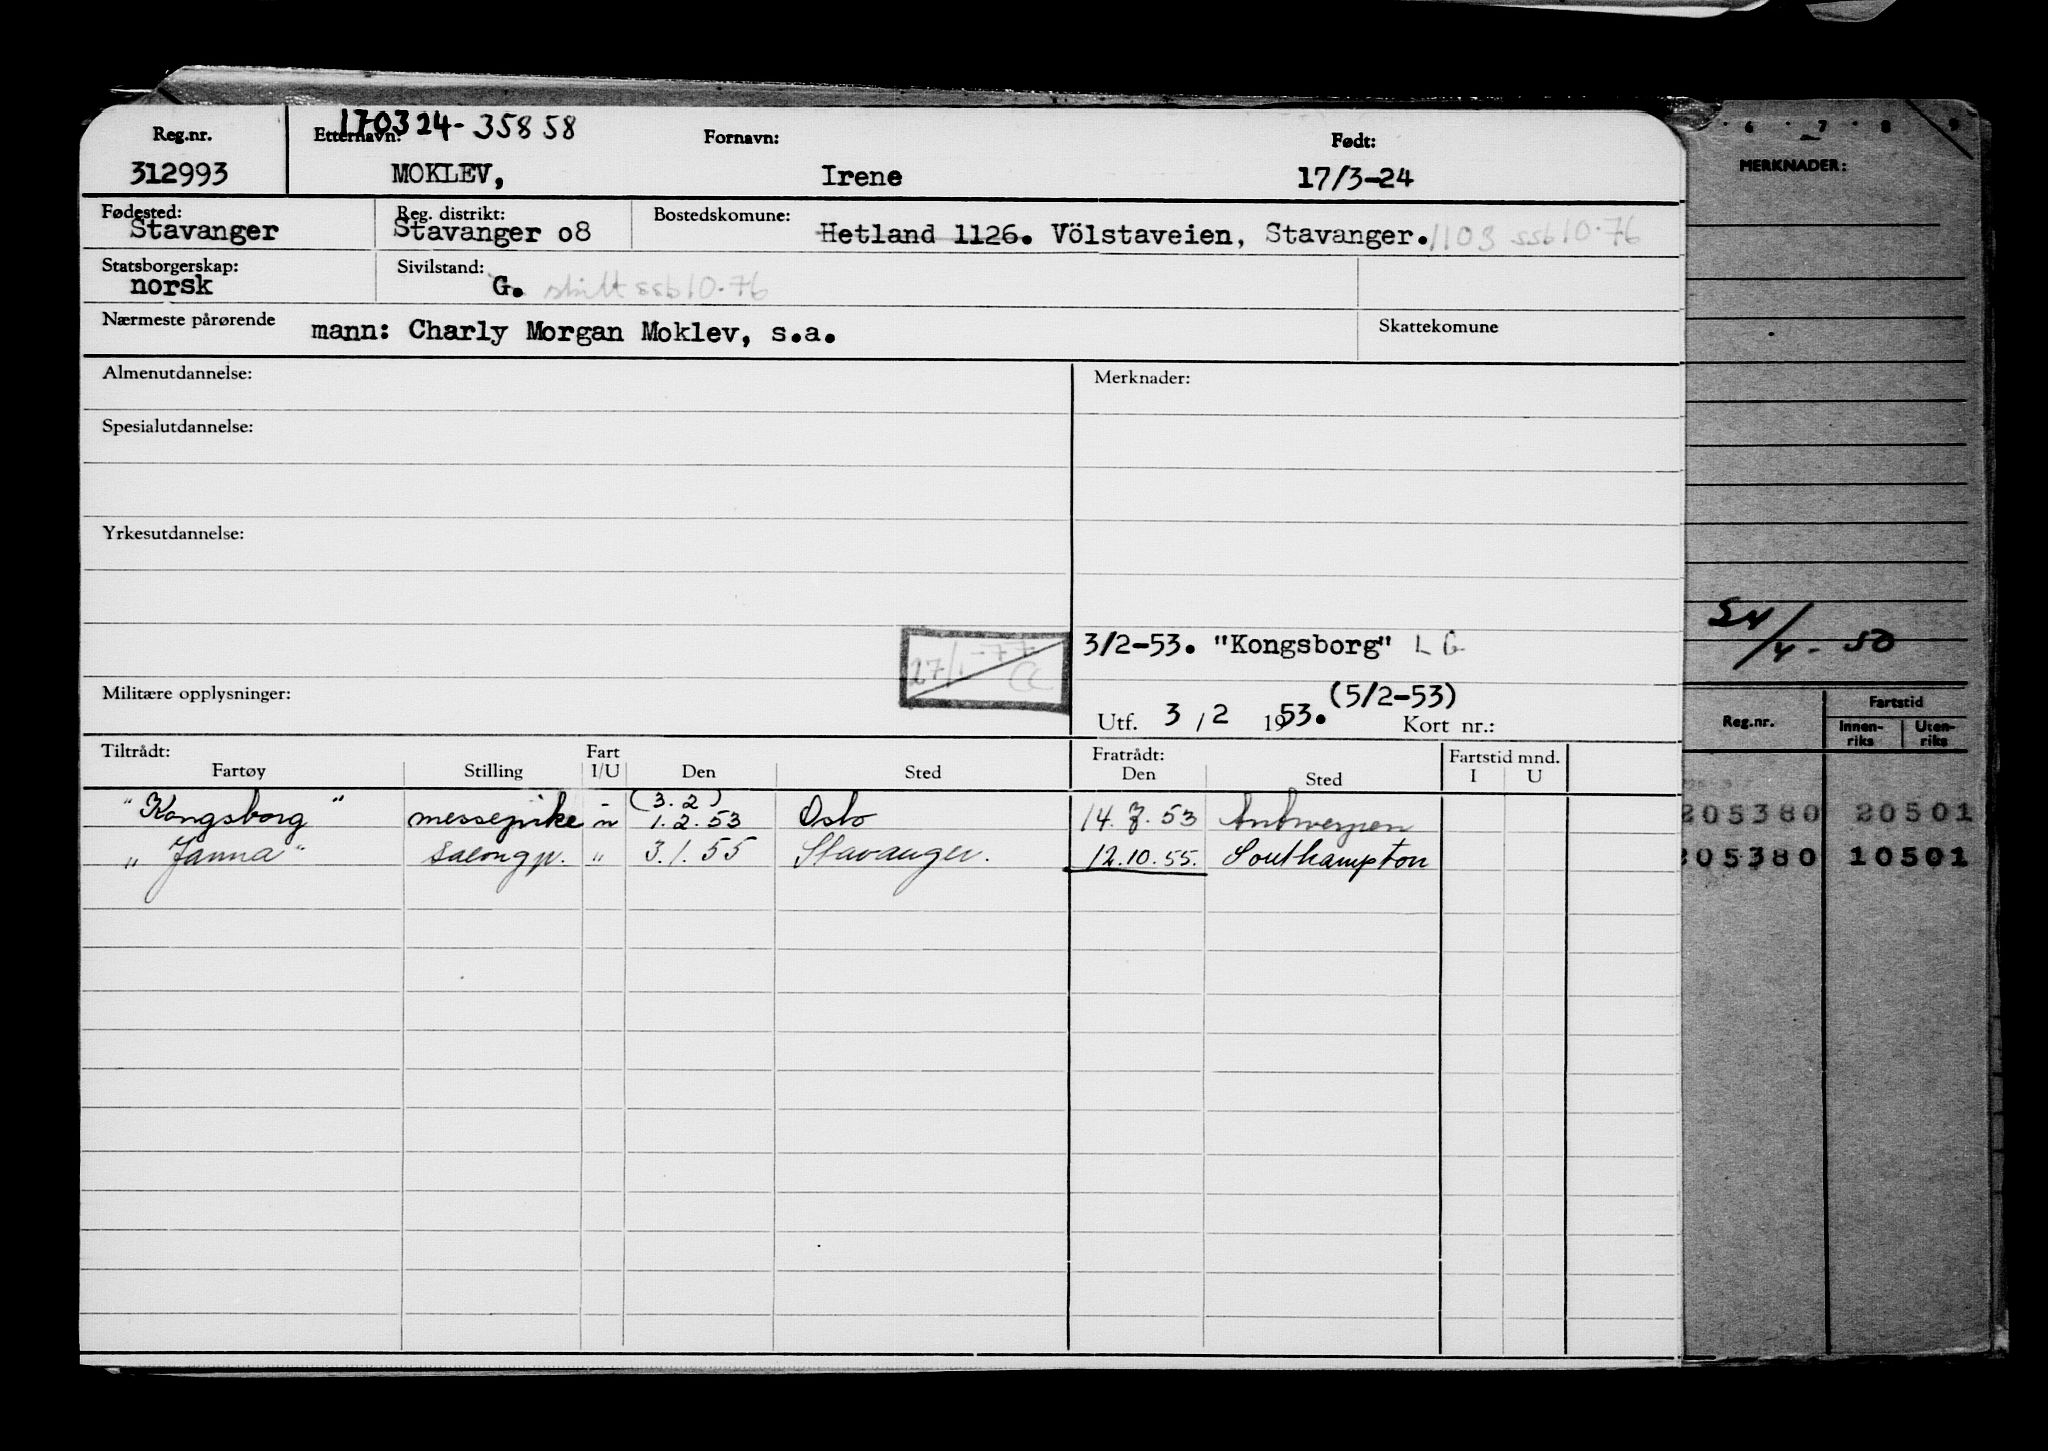 170324-35858
Reg.nr. Etternavn: Fornavn: Født:
312993 MOKLEV, Irene 17/3-24
Fødested: Reg. distrikt: Bostedskomune:
Stavanger Stavanger o8 Hetland 1126. Völstaveien, Stavanger. 1103 ssb10.76
Statsborgerskap: Sivilstand:
norsk G. skilt ssb10.76
Nærmeste pårørende mann: Charly Morgan Moklev, s.a. Skattekomune
Almenutdannelse: Merknader:
Spesialutdannelse:
Yrkesutdannelse:
3/2-53. "Kongsborg" L G
27/1-77 CC
Militære opplysninger: (5/2-53)
Utf. 3 / 2 1953. Kort nr.:
Tiltrådt: Fart Fratrådt: Fartstid mnd.
Fartøy Stilling I/U Den Sted Den Sted I U
(3.2)
"Kongsborg" messepike 1.2.53 Oslo 14.7.53 Antwerpen
"Janna" salongp. " 3.1.55 Stavanger. 12.10.55. Southampton
6 7 8 9
MERKNADER:
24/4-50
Reg.nr. Fartstid
Innen-riks Uten-riks
205380 20501
205380 10501